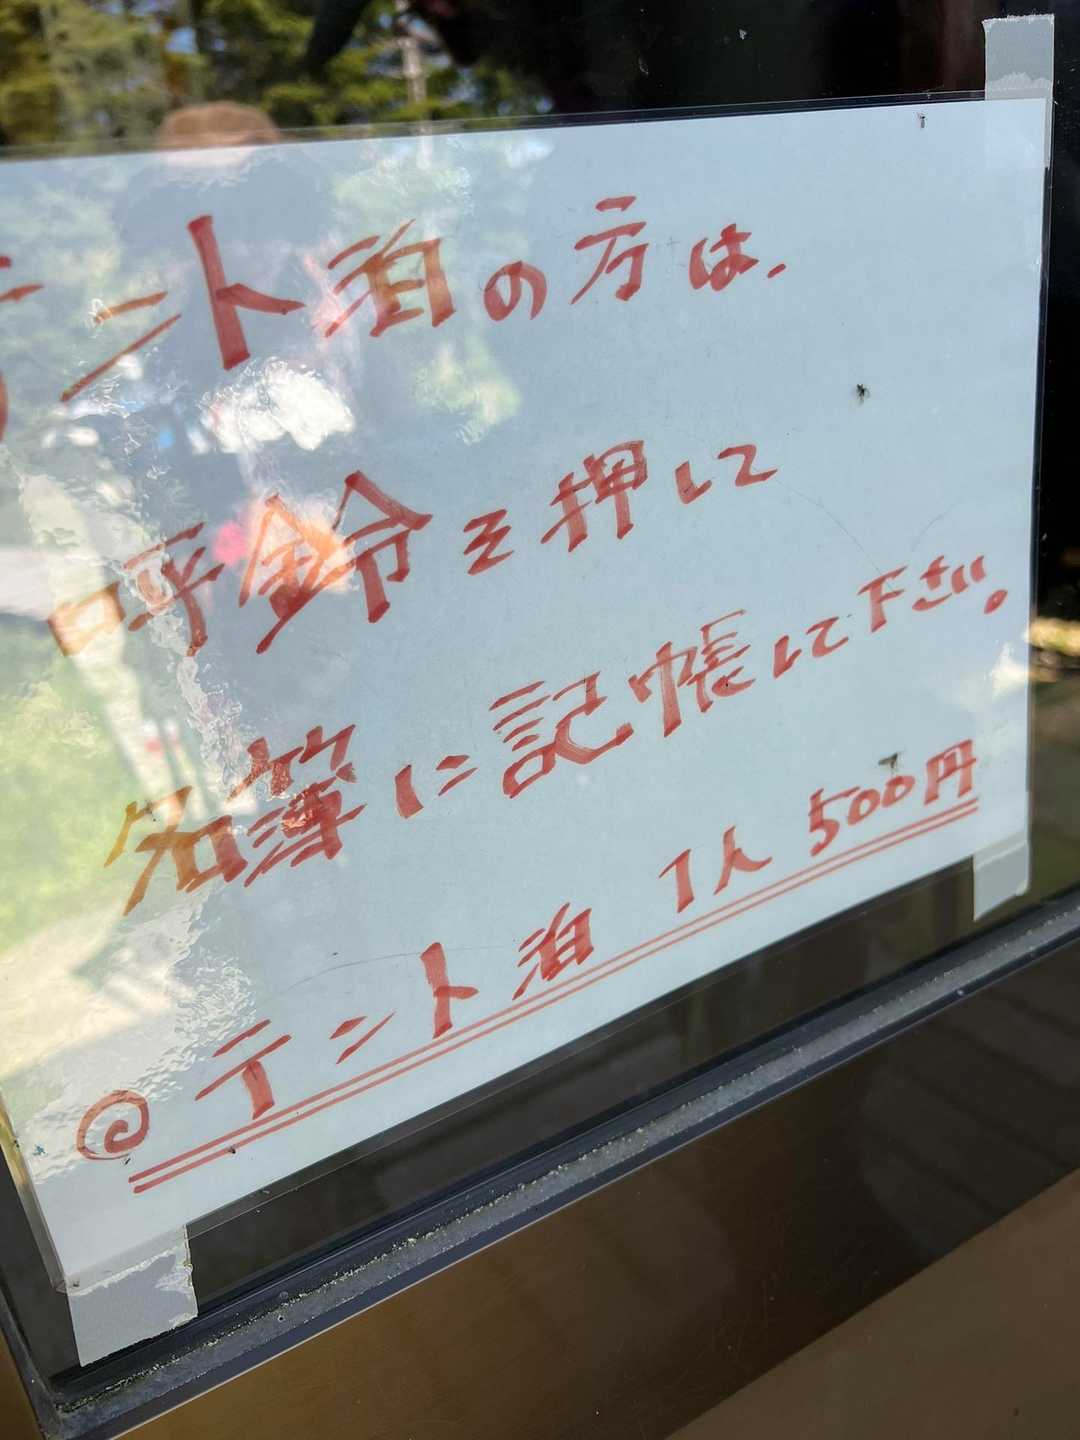 テント泊の方は、
呼鈴を押して
名簿に記帳して下さい。
◎テント泊 1人 500円